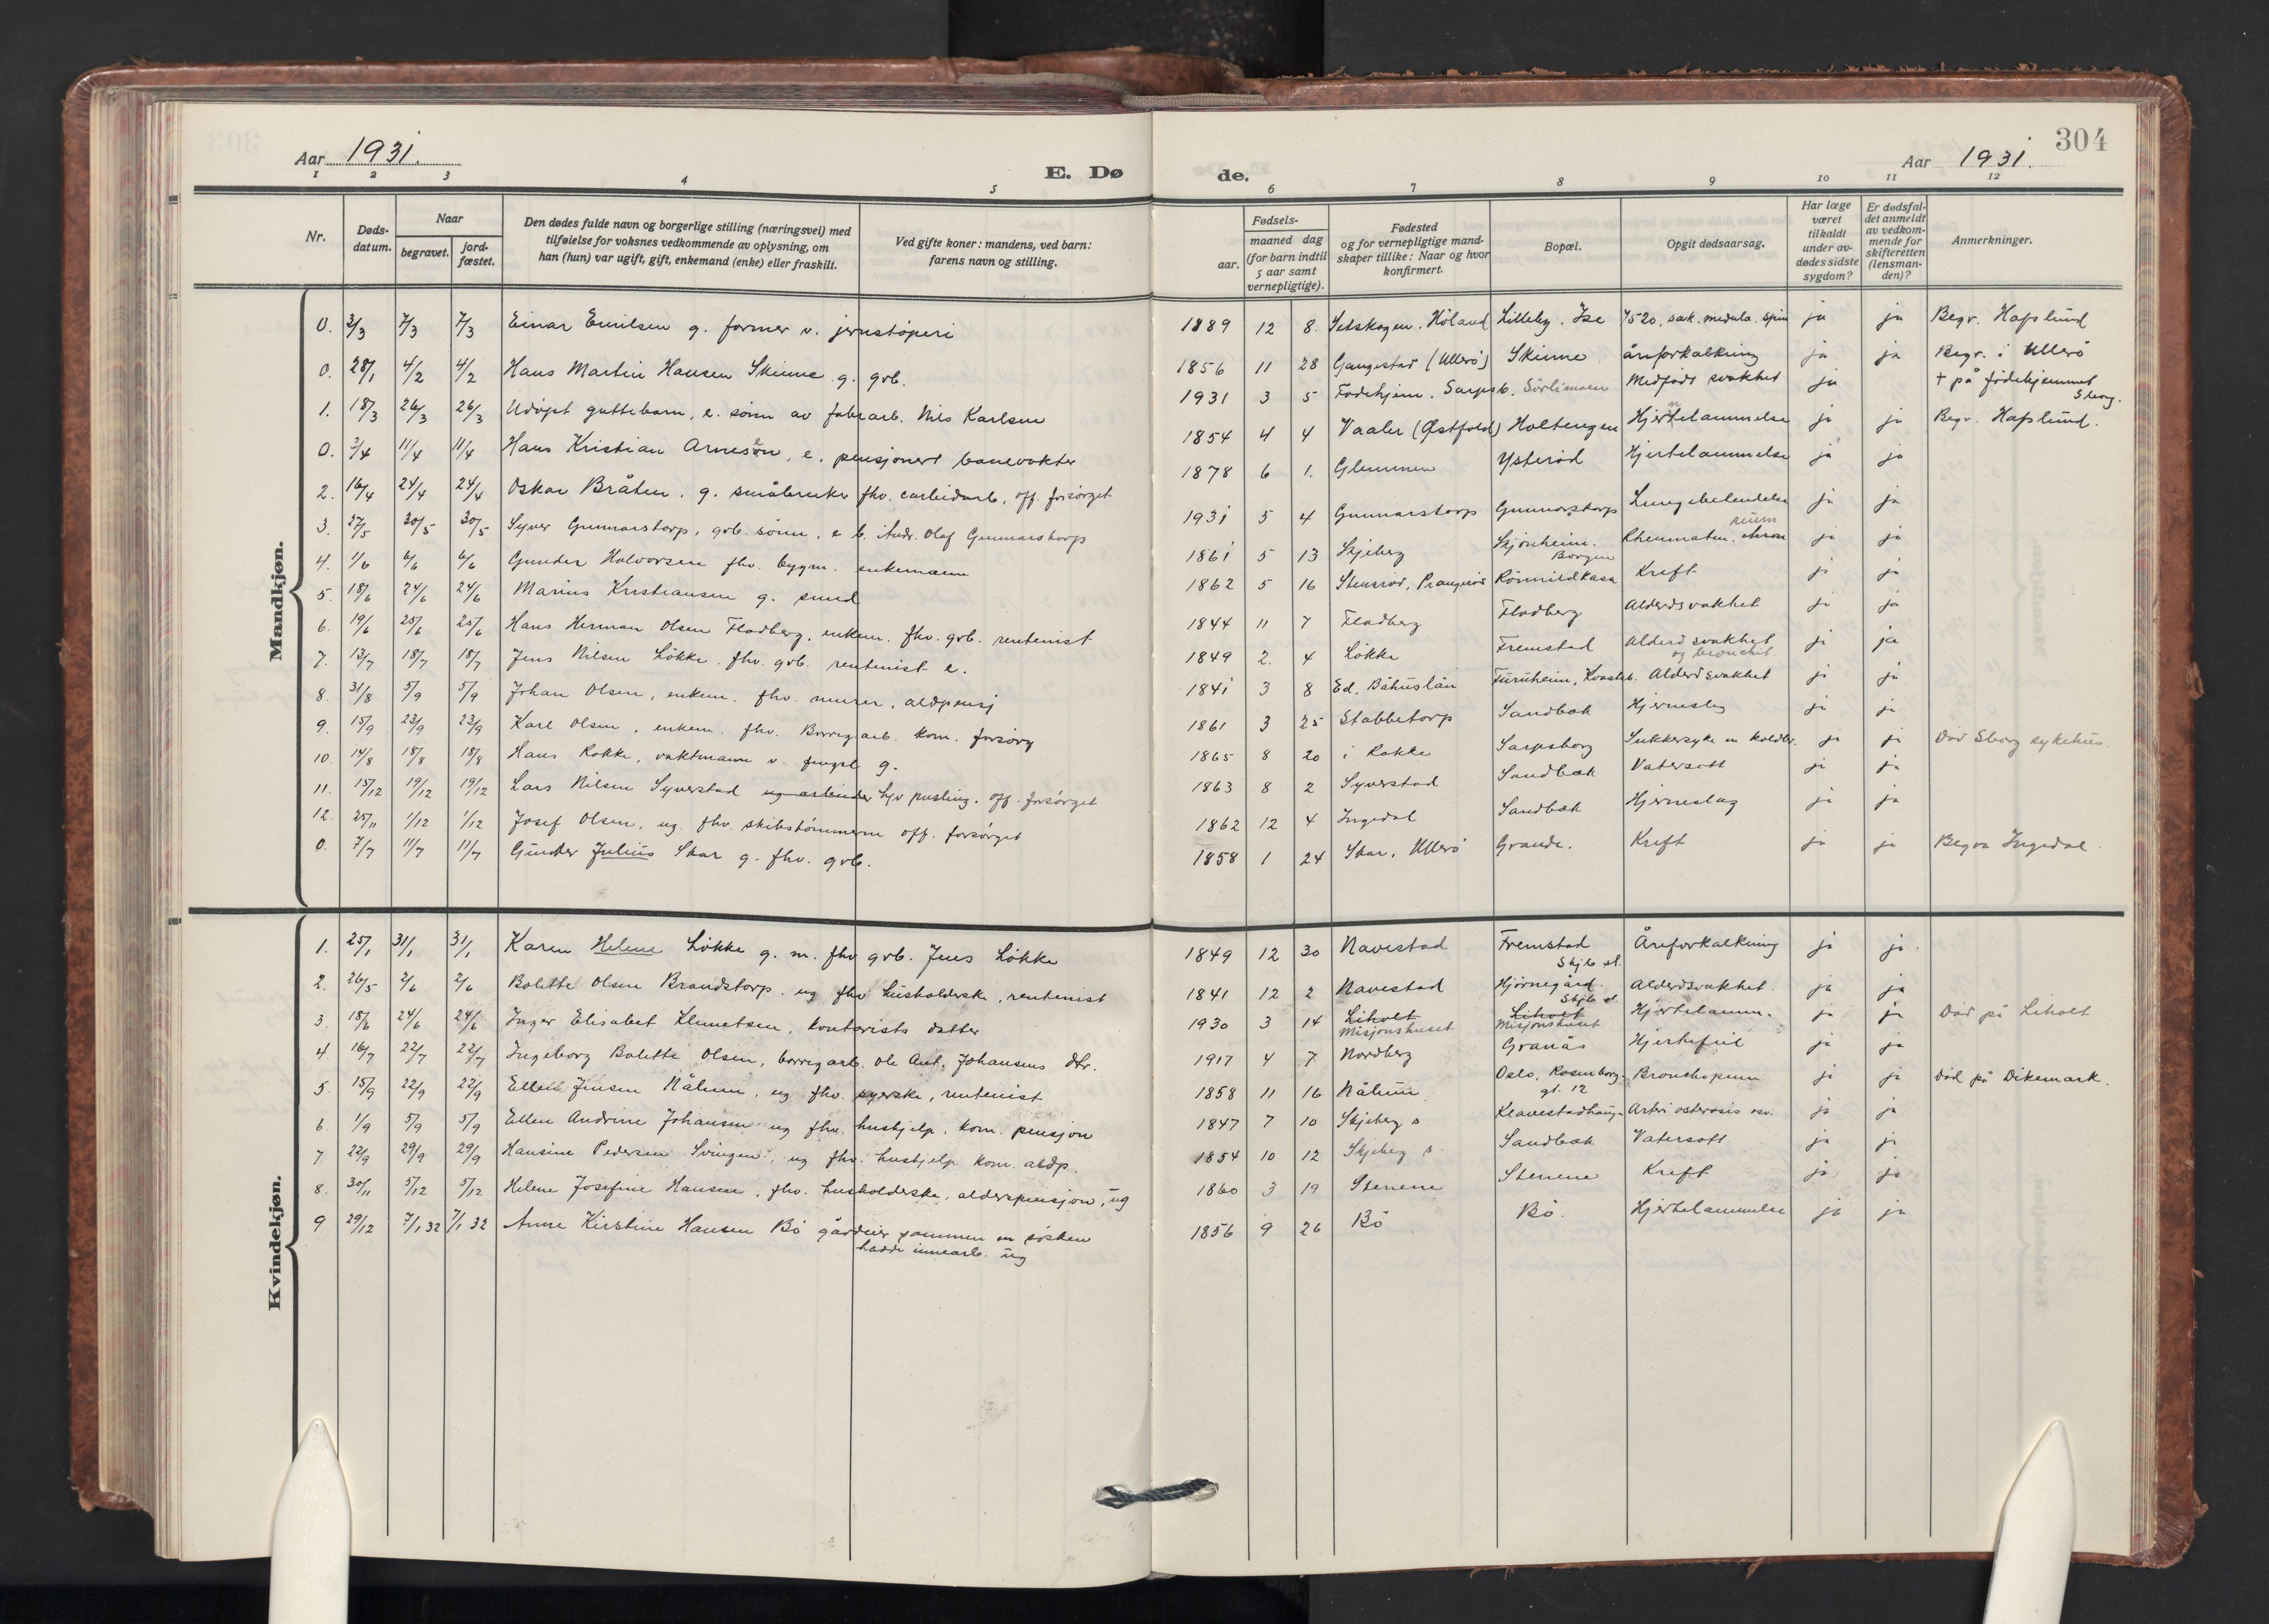 304
Aar 1931.
E. Dø
de.
Aar 1931.
1 2 3 4 5 6 7 8 9 10 11 12
Nr.
Døds-
datum.
Naar
begravet.
jord-
fæstet.
Den dødes fulde navn og borgerlige stilling (næringsvei) med
tilføielse for voksnes vedkommende av oplysning, om
han (hun) var ugift, gift, enkemand (enke) eller fraskilt.
Ved gifte koner: mandens, ved barn:
farens navn og stilling.
Fødsels-
aar.
maaned dag
(for barn indtil
5 aar samt
vernepligtige).
Fødested
og for vernepligtige mand-
skaper tillike: Naar og hvor
konfirmert.
Bopæl.
Opgit dødsaarsag.
Har læge
været
tilkaldt
under av-
dødes sidste
sygdom?
Er dødsfal-
det anmeldt
av vedkom-
mende for
skifteretten
(lensman-
den)?
Anmerkninger.
Mandkjøn.
0. 3/3 7/3 7/3 Einar Emilsen g. former v. jernstöperi 1889 12 8. Setskogen. Höland Lilleby. Ise ja ja Begr. Hafslund
0. 28/1 4/2 4/2 Hans Martin Hansen Skinne g. grb. 1856 11 28 Gangestad (Ullerö) Skinne åreforkalkning ja ja Begr. i Ullerö
1. 18/3 26/3 26/3 Udöpt guttebarn, e. sönn av fabrarb. Nils Karlsen 1931 3 5 Födehjem. Sarpsb. Sörlimoen Medfödt svakhet ja † på födehjemmet Sborg.
0. 3/4 11/4 11/4 Hans Kristian Arnesen, e. pensjonert banevokter 1854 4 4 Vaaler (Østfold) Holtengen Hjertelammelse ja ja Begr. Hafslund.
2. 16/4 24/4 24/4 Oskar Bråten. g. småbruker fhv. carbidarb, off. forsörget 1878 6 1. Glemmen Ysteröd Hjertelammelse ja ja
3. 27/5 30/5 30/5 Syver Gunnarstorp, grb. sönn, e b. Andr. Olaf Gunnarstorp 1931 5 4 Gunnarstorp Gunnarstorp Lungebetendelse ja ja
4. 1/6 6/6 6/6 Gunder Halvorsen fhv. bygm. enkemann 1861 5 13 Skjeberg Skjönheim. Borgen Rheumatm. chron ja ja
5. 18/6 24/6 24/6 Marius Kristiansen g. smed 1862 5 16 Stensröd, Prangeröd Rönnildkasa Kreft ja ja
6. 19/6 25/6 25/6 Hans Herman Olsen Fladberg, enkem. fhv. grb. rentenist 1844 11 7 Fladberg Fladberg Alderdsvakhet ja ja
7. 13/7 18/7 18/7 Jens Nilsen Lökke. fhv. grb. rentenist e. 1849 2. 4 Lökke Fremstad Alderdsvakhet og bronchit ja ja
8. 31/8 5/9 5/9 Johan Olsen, enkem. fhv. murer, aldpensj 1841 3 8 Ed. Båhuslän Furuheim, Kvasteb. Alderdsvakhet ja ja
9. 15/9 23/9 23/9 Karl Olsen, enkem. fhv. Borregarb. kom. forsörg 1861 3 25 Stabbetorp Sandbak Hjerneslag ja ja
10. 14/8 18/8 18/8 Hans Rokke, vaktmann v. fengsl g. 1865 8 20 i Rokke Sarpsborg Sukkersyke m koldbr. ja ja Död Sborg sykehus.
11. 15/12 19/12 19/12 Lars Nilsen Syverstad ug arbeider off. forsörget 1863 8 2 Syverstad Sandbæk Vatersott ja ja
12. 25/11 1/12 1/12 Josef Olsen, ug. fhv. skibstömmerm off. forsörget 1862 12 4 Ingedal Sandbæk Hjerneslag ja ja
0. 7/7 11/7 11/7 Gunder Julius Skar g. fhv. grb. 1858 1 24 Skar, Ullerö Grande. Kreft ja ja Begra Ingedal.
Kvindekjøn.
1. 25/1 31/1 31/1 Karen Helene Lökke g. m. fhv grb. Jens Lökke 1849 12 30 Navestad Fremstad Skjb sl. Åreforkalkning ja ja.
2. 26/5 2/6 2/6 Bolette Olsen Brandstorp. ug fhv husholderske, rentenist 1841 12 2 Navestad Hjörnegård. Skjb sl. Alderdsvakhet. ja ja
3. 18/6 24/6 24/6 Inger Elisabet Klemetsen, kontorists datter 1930 3 14 Liholt Misjonshuset Liholt Misjonshuset Hjertelamm. ja ja Död på Liholt
4. 16/7 22/7 22/7 Ingeborg Bolette Olsen, borregarb. Ole Ant. Johansens dtr. 1917 4 7 Nordberg Granås Hjertefeil ja ja
5. 15/9 22/9 22/9 Ellen Jensen Nålum, ug fhv. syerske, rentenist 1858 11 16 Nålum Oslo, Rosenborg- gt. 12 Bronchopneu ja ja död på Dikemark.
6. 1/9 5/9 5/9 Ellen Andrine Johansen ug fhv. hushjelp. kom. pensjon 1847 7 10 Skjeberg s Klavestadhaug- ja ja
7. 22/9 29/9 29/9 Hansine Pedersen Svingen, ug fhv. hushjelp kom. aldp. 1854 10 12 Skjeberg s Sandbæk Vatersott ja ja
8. 30/11 5/12 5/12 Helene Josefine Hansen, fhv. husholderske, alderspensjon, ug 1860 3 19 Stenene Stenene Kreft ja ja
9 29/12 7/1 32 7/1 32 Anne Kirstine Hansen Bö gårdeier sammen m søsken hadde innearb. ug 1856 9 26 Bö Bö. Hjertelammelse ja ja